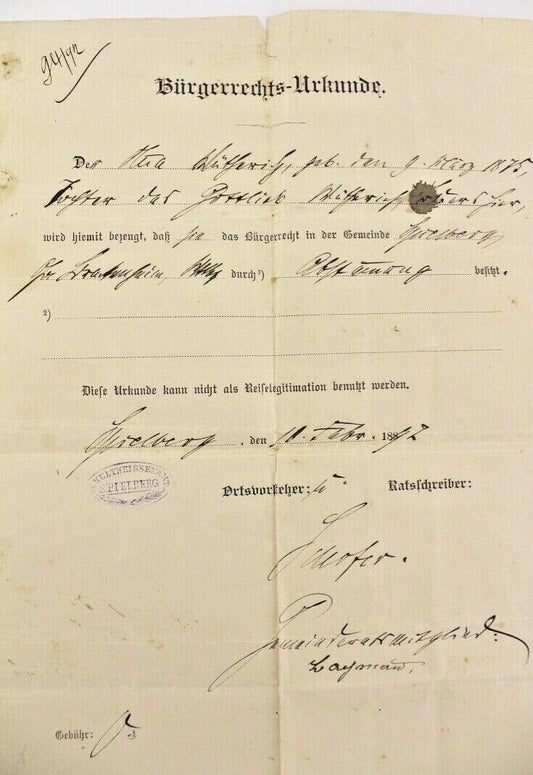 94/92
Bürgerrechts-Urkunde.
Der Wütherich, geb. den 9. März 1875,
Tochter des Gottlieb Wütherich, hier,
wird hiemit bezeugt, daß sie das Bürgerrecht in der Gemeinde Spielberg,
Brackenheim, durch ¹) Abstammung besitzt.
²)
Diese Urkunde kann nicht als Reiselegitimation benutzt werden.
Spielberg, den 10. Febr. 1892
SCHULTHEISSENAMT
SPIELBERG
Ortsvorsteher: Ratsschreiber:
Gemeinderatsmitglied:
Gebühr: